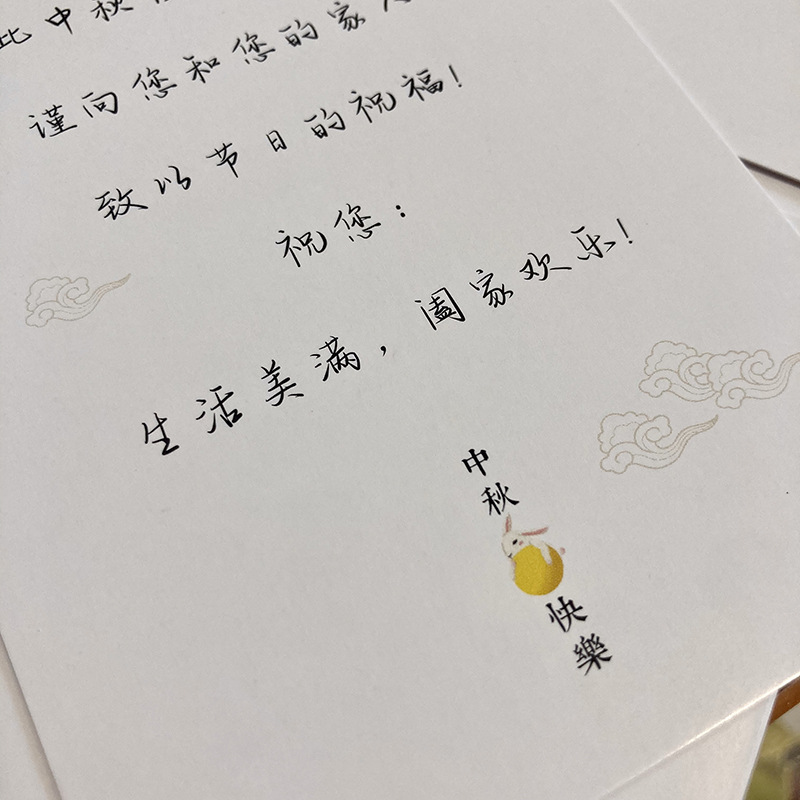 此中秋
谨向您和您的家人
致以节日的祝福!
祝您:
生活美满,阖家欢乐!
中秋
快樂